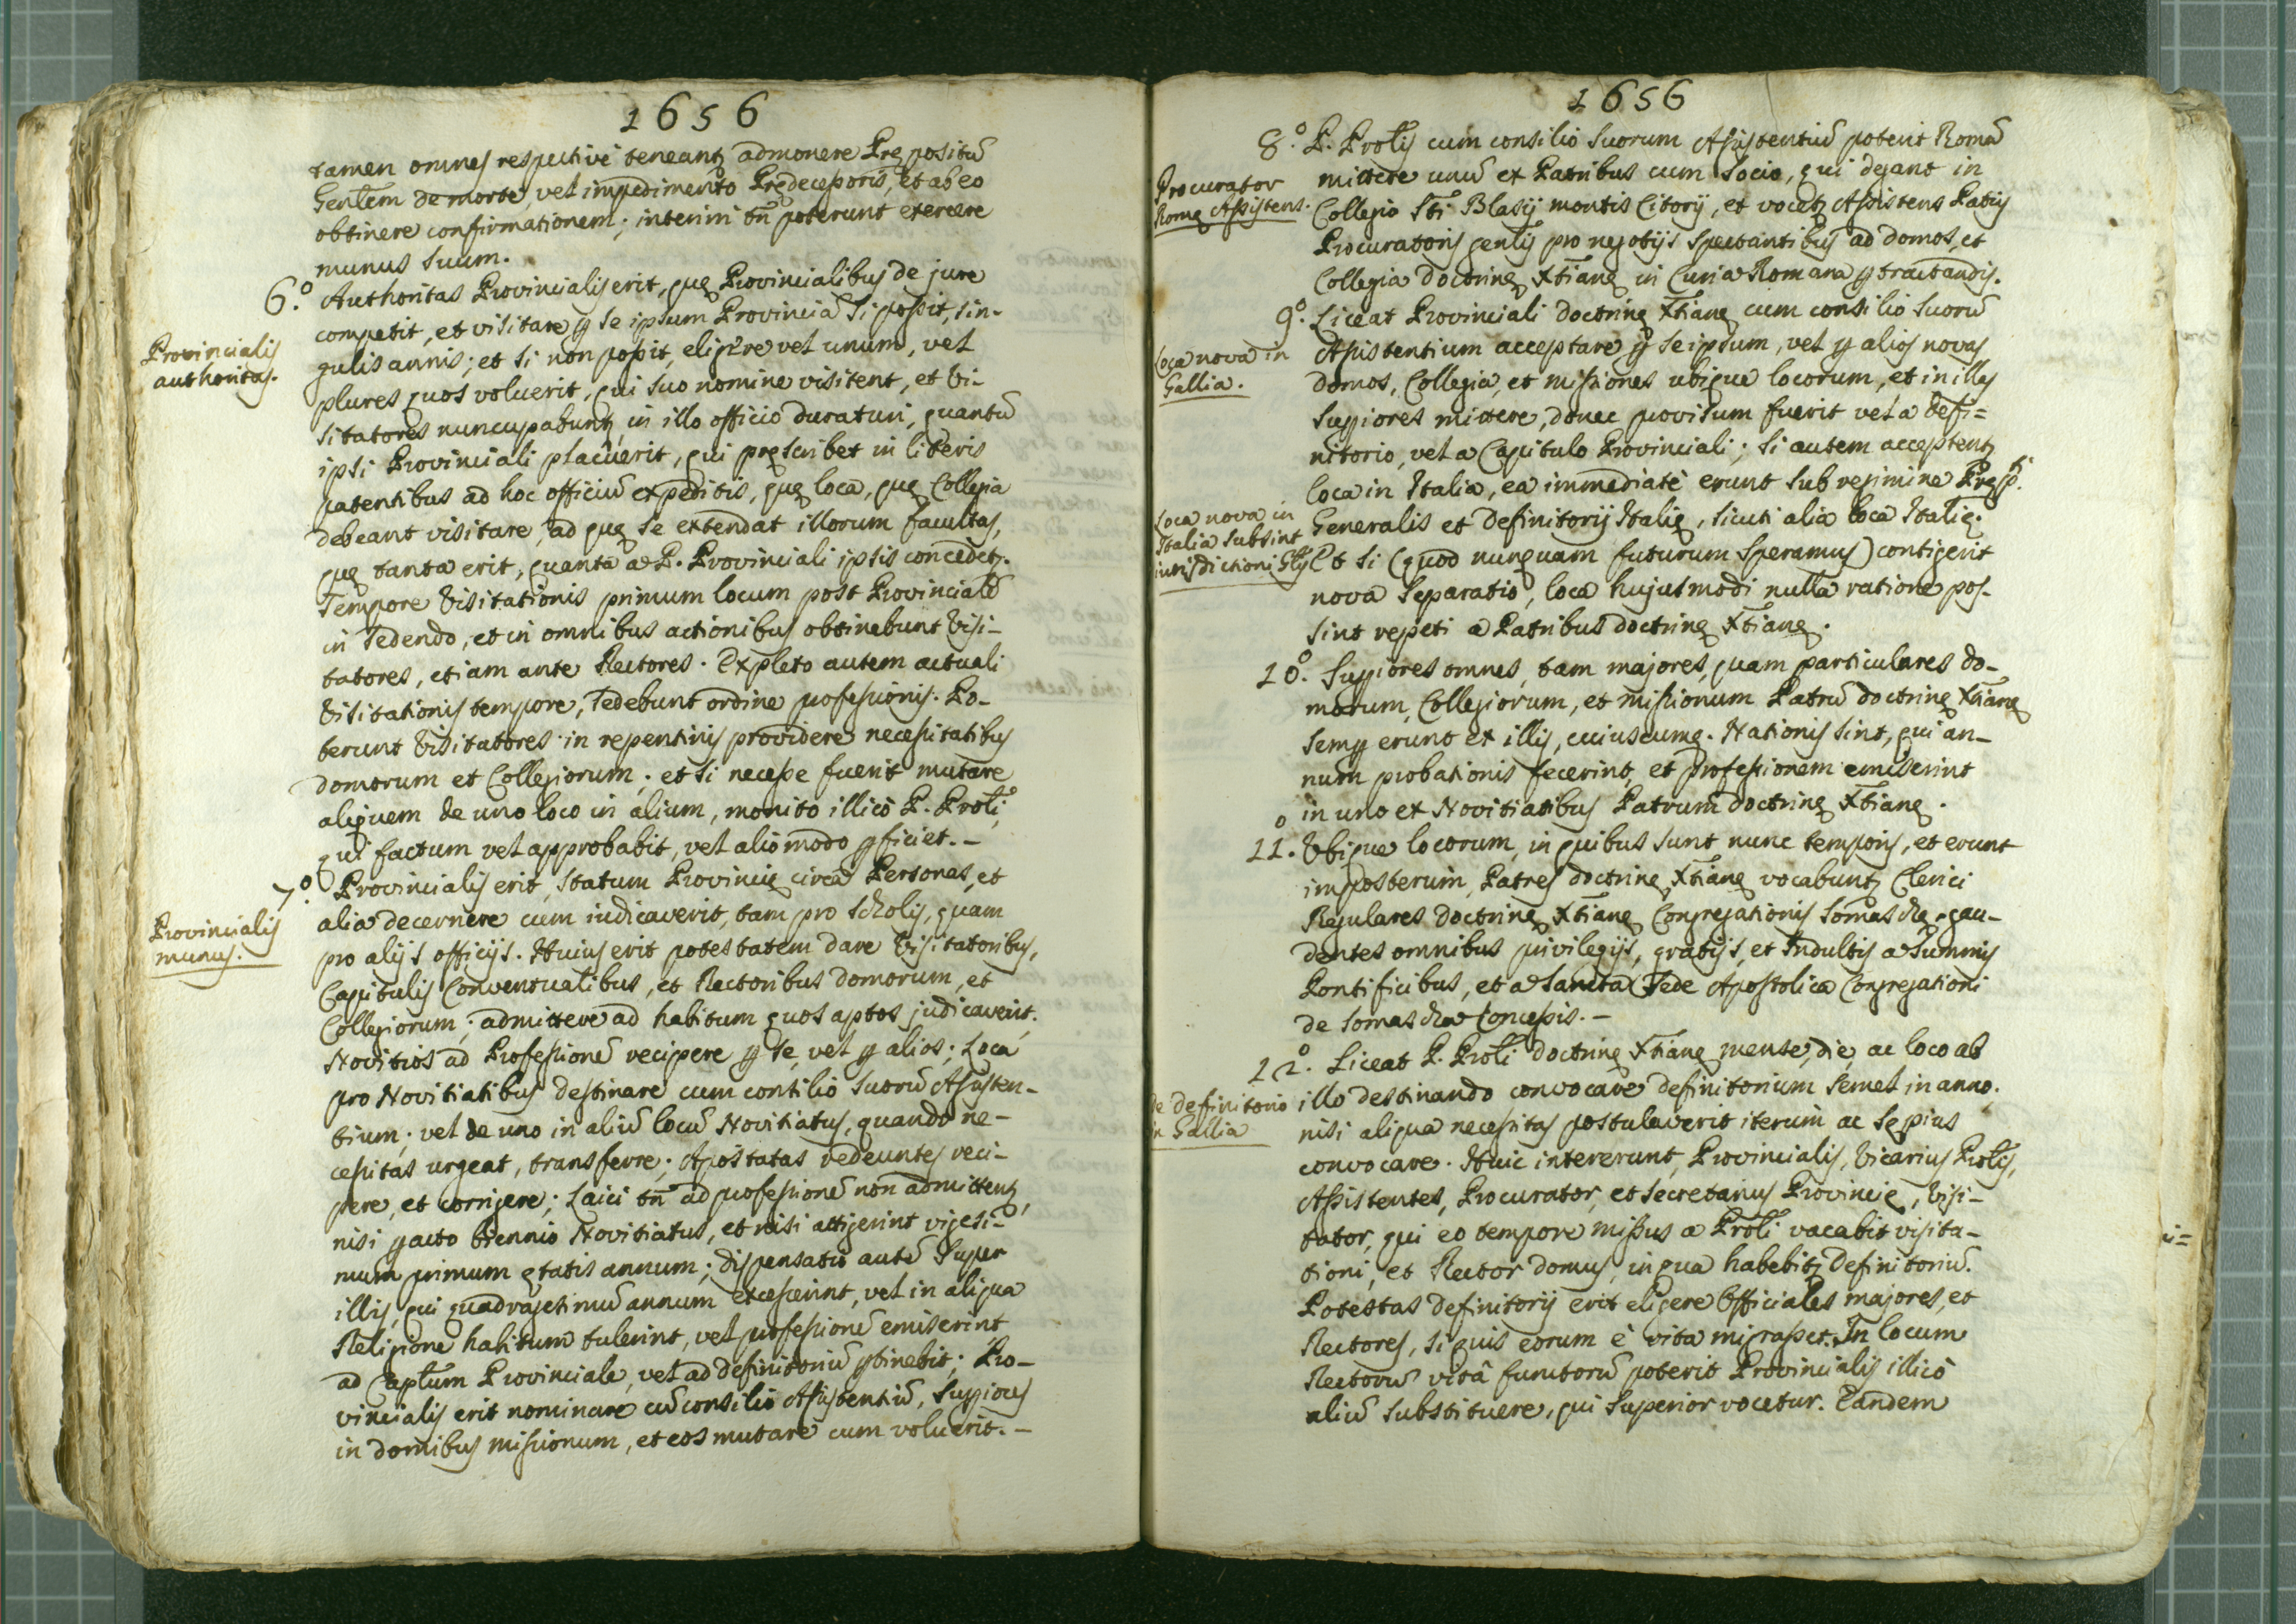 1656
tamen omnes respectivè teneantꝫ admonere Prępositū
Genlem de morte, vel impedimento Prędecessoris, et ab eo
obtinere confirmationem; interim tñ poterunt exercere
munus suum.
6.º Authoritas Provincialis erit, quę Provincialibus de jure
competit, et visitare ꝑ se ipsum Provinciā si possit, sin-
Provincialis
authoritas.
gulis annis; et si non possit, eligere vel unum, vel
plures quos voluerit, qui suo nomine visitent, et Vi-
sitatores nuncupabuntꝫ in illo officio duraturi, quantū
ipsi Provinciali placuerit, qui pręscribet in literis
patentibus ad hoc officiū expeditis, quę loca, quę Collegia
debeant visitare, ad quę se extendat illorum facultas,
quę tanta erit, quanta a P. Provinciali ipsis concedetꝫ.
Tempore Visitationis primum locum post Provincialē
in sedendo, et in omnibus actionibus obtinebunt Visi-
tatores, etiam ante Rectores. Expleto autem actuali
Visitationis tempore, sedebunt ordine professionis. Po-
terunt Visitatores in repentinis providere necessitatibus
domorum et Collegiorum; et si necesse fuerit mutare
aliquem de uno loco in alium, monito illicò P. Proli,
qui factum vel approbabit, vel alio modo ꝑficiet. -
7.º Provincialis erit, statum Provincię circa Personas, et
alia decernere cum iudicaverit, tam pro scholis, quam
Provincialis
munus.
pro alijs officijs. Huius erit potestatem dare Visitatoribus,
Capitulis Conventualibus, et Rectoribus domorum, et
Collegiorum; admittere ad habitum quos aptos judicaverit;
Novitios ad Professionē recipere ꝑ se, vel ꝑ alios; Loca
pro Novitiatibus destinare cum consilio suorū Assisten-
tium; vel de uno in aliū locū Novitiatus, quando ne-
cessitas urgeat, transferre; Apostatas redeuntes reci-
pere, et corrigere; Laici tñ ad professionē non admittentꝫ,
nisi ꝑacto biennio Novitiatus, et nisi attigerint vigesi-
mum primum ętatis annum; dispensatio autē super
illis, qui quadragesimū annum excesserint, vel in aliqua
Religione habitum tulerint, vel professionē emiserint
ad Caplum Provinciale, vel ad definitoriū ꝑtinebit; Pro-
vincialis erit nominare cū consilio Assistentiū, Supꝑiores
in domibus missionum, et eos mutare cum voluerit. -
1656
8.º P. Prolis cum consilio suorum Assistentiū poterit Romā
mittere unū ex Patribus cum socio, qui degant in
Procurator
Romę Assistens.
Collegio Sti Blasij montis Citorij, et vocetꝫ Assistens Patris
Procuratoris genlis pro negotijs spectantibus ad domos, et
Collegia doctrinę Xtianę in Curia Romana ꝑtractandis.
9.º Liceat Provinciali doctrinę Xtianę cum consilio suorū
Assistentium acceptare ꝑ se ipsum, vel ꝑ alios novas
Loca nova in
Gallia.
domos, Collegia, et missiones ubique locorum, et in illas
Supꝑiores mittere, donec provisum fuerit vel a defi=
nitorio, vel a Capitulo Provinciali; si autem acceptentꝫ
loca in Italia, ea immediatè erunt sub regimine Pręp.ti
Loca nova in
Italia subsint
iurisdictioni Glis
Generalis et definitorij Italię, sicuti alia loca Italię.
Et si (quod nunquam futurum speramus) contigerit
nova separatio, loca hujusmodi nulla ratione pos-
sint repeti a Patribus doctrinę Xtianę.
10.º Supꝑiores omnes, tam majores, quam particulares do-
morum, Collegiorum, et missionum Patrū doctrinę Xtianę
semꝑ erunt ex illis, cuiuscumq. Nationis sint, qui an-
num probationis fecerint, et professionem emiserint
in uno ex Novitiatibus Patrum doctrinę Xtianę.
11.º Ubique locorum, in quibus sunt nunc temporis, et erunt
imposterum, Patres doctrinę Xtianę vocabuntꝫ Clerici
Regulares doctrinę Xtianę Congregationis Somaschę, gau-
dentes omnibus privilegijs, gratijs, et Indultis a Summis
Pontificibus, et a Sancta Sede Apostolica Congregationi
de Somascha Concessis. -
12.º Liceat P. Proli doctrinę Xtianę mense, die, ac loco ab
illo destinando convocare definitorium semel in anno;
de definitorio
in Gallia
nisi aliqua necessitas postulaverit iterum ac sępius
convocare. Huic intererunt, Provincialis, Vicarius Prolis,
Assistentes, Procurator, et Secretarius Provincię, Visi-
tator, qui eo tempore missus a Proli vacabit visita-
tioni, et Rector domus, in qua habebitꝫ Definitoriū.
Potestas definitorij erit eligere Officiales majores, et
Rectores, si quis eorum è vita migrasset. In locum
Rectorū vitâ functorū poterit Provincialis illicò
aliū substituere, qui Superior vocetur. Tandem